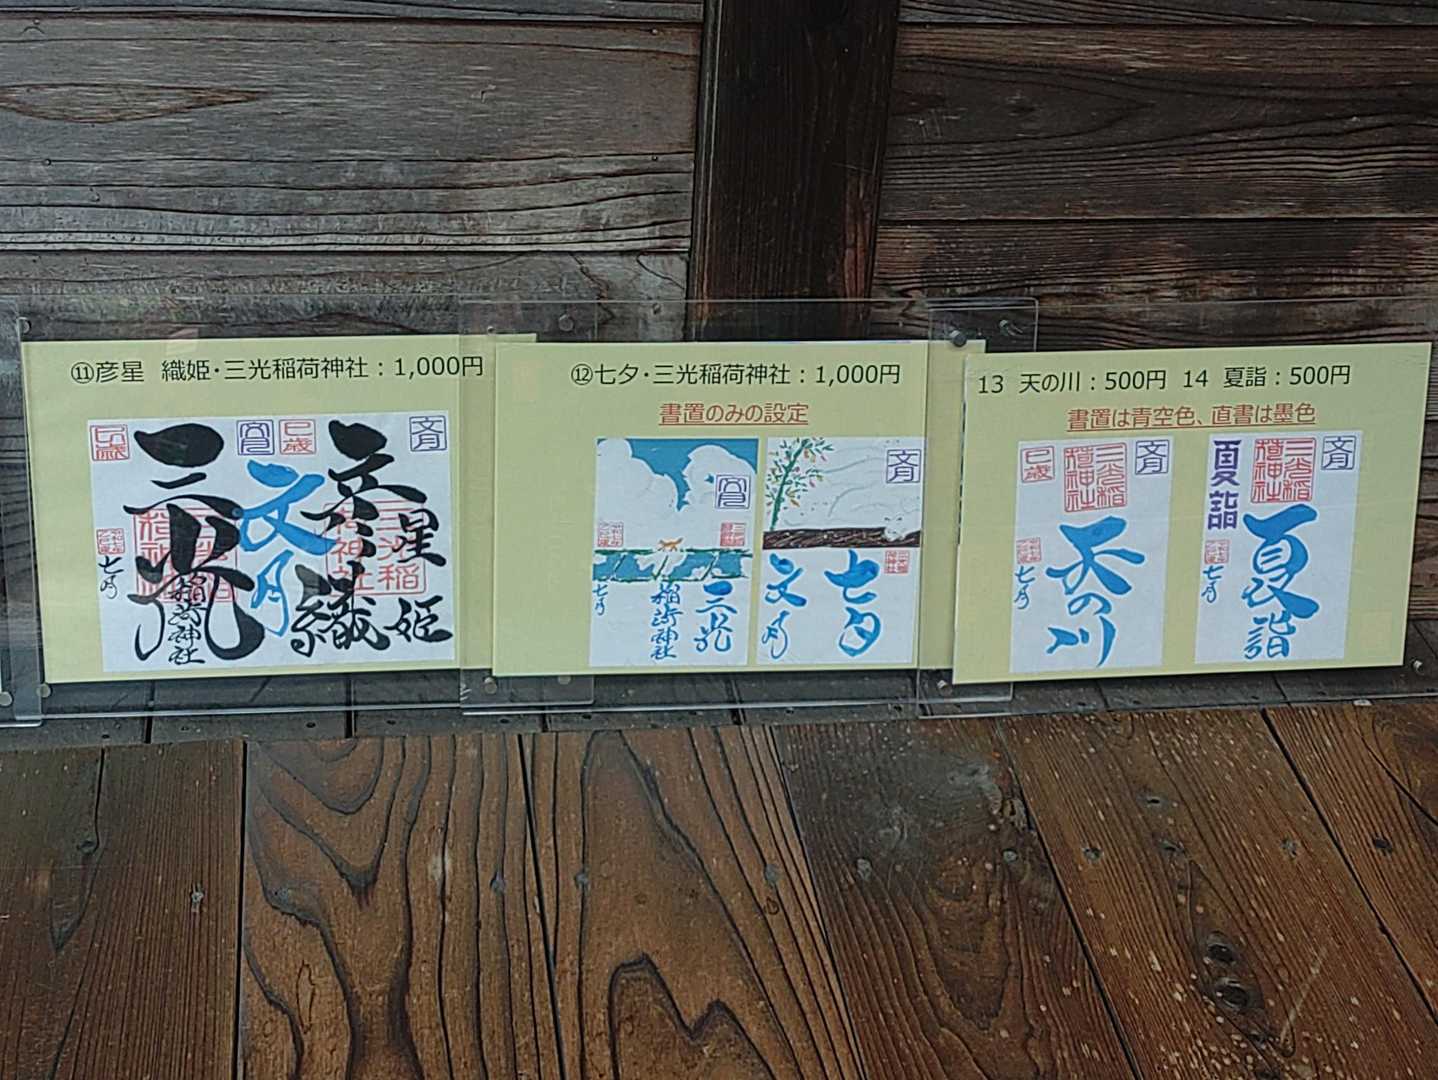 ⑪彦星 織姫・三光稲荷神社：1,000円
巳歳
文月
巳歳
文月
三光
稲荷神社
文月
彦星
織姫
七月
⑫七夕・三光稲荷神社：1,000円
書置のみの設定
文月
七夕
文月
三光
稲荷神社
七月
13 天の川：500円 14 夏詣：500円
書置は青空色、直書は墨色
巳歳
三光稲荷神社
文月
天の川
七月
夏詣
三光稲荷神社
文月
夏詣
七月